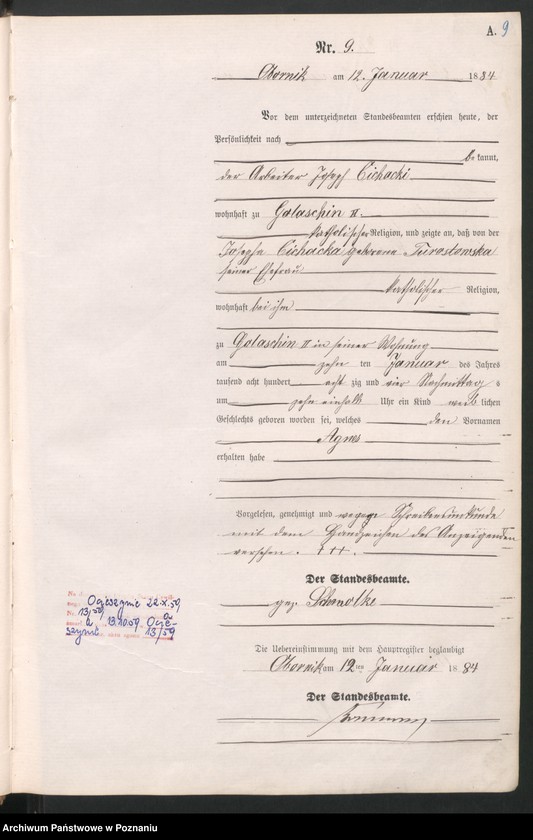 A. 9
Nr. 9.
Obornik am 12. Januar 1884
Vor dem unterzeichneten Standesbeamten erschien heute, der
Persönlichkeit nach
bekannt,
der Arbeiter Joseph Cichacki
wohnhaft zu Golaschin II.
katholischer Religion, und zeigte an, daß von der
Josepha Cichacka geborene
seiner Ehefrau
katholischer Religion,
wohnhaft bei ihm
zu Golaschin II in seiner Wohnung
am zehn ten Januar des Jahres
tausend acht hundert acht zig und vier Nachmittag s
um zehn einhalb Uhr ein Kind weib lichen
Geschlechts geboren worden sei, welches den Vornamen
Agnes
erhalten habe
Vorgelesen, genehmigt und wegen Schreibensunkunde
mit dem Handzeichen des Anzeigenden
versehen. +++.
Der Standesbeamte.
gez.
Die Uebereinstimmung mit dem Hauptregister beglaubigt
Obornik am 12ten Januar 1884
Der Standesbeamte.
22.X.59
13/59
13.10.59
13/59
Archiwum Państwowe w Poznaniu